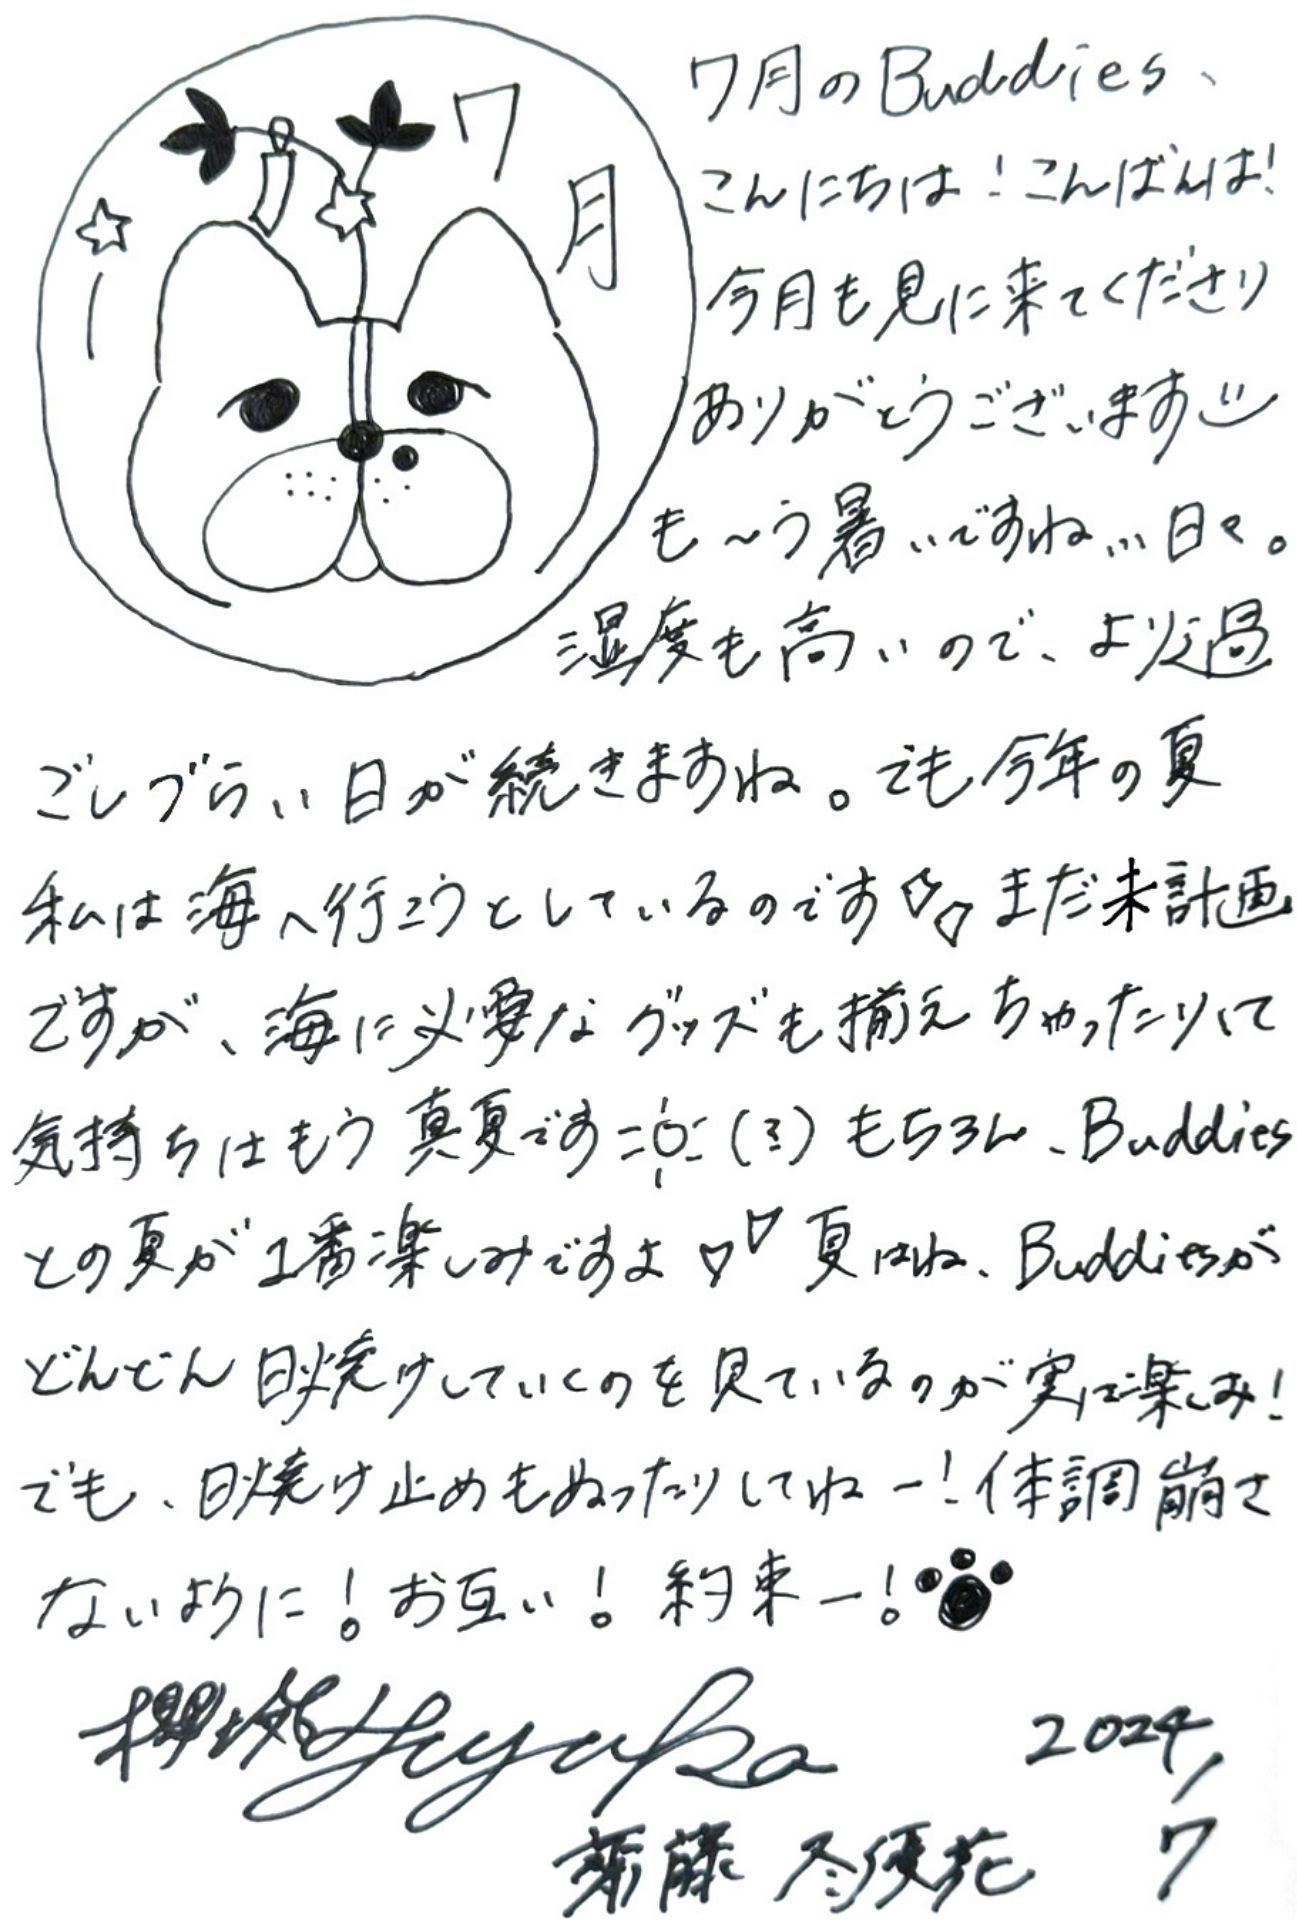 7月
7月のBuddies、
こんにちは！こんばんは！
今月も見に来てくださり
ありがとうございます
も〜う暑いですね…日々。
湿度も高いので、より過
ごしづらい日が続きますね。でも今年の夏
私は海へ行こうとしているのです♡♡まだ未計画
ですが、海に必要なグッズも揃えちゃったりして
気持ちはもう真夏です(?)もちろん、Buddies
との夏が1番楽しみですよ♡♡夏はね、Buddiesが
どんどん日焼けしていくのを見ているのが実は楽しみ！
でも、日焼け止めもぬったりしてねー！体調崩さ
ないように！お互い！約束ー！
櫻坂 Fuyuka
2024,
齋藤 冬優花 7